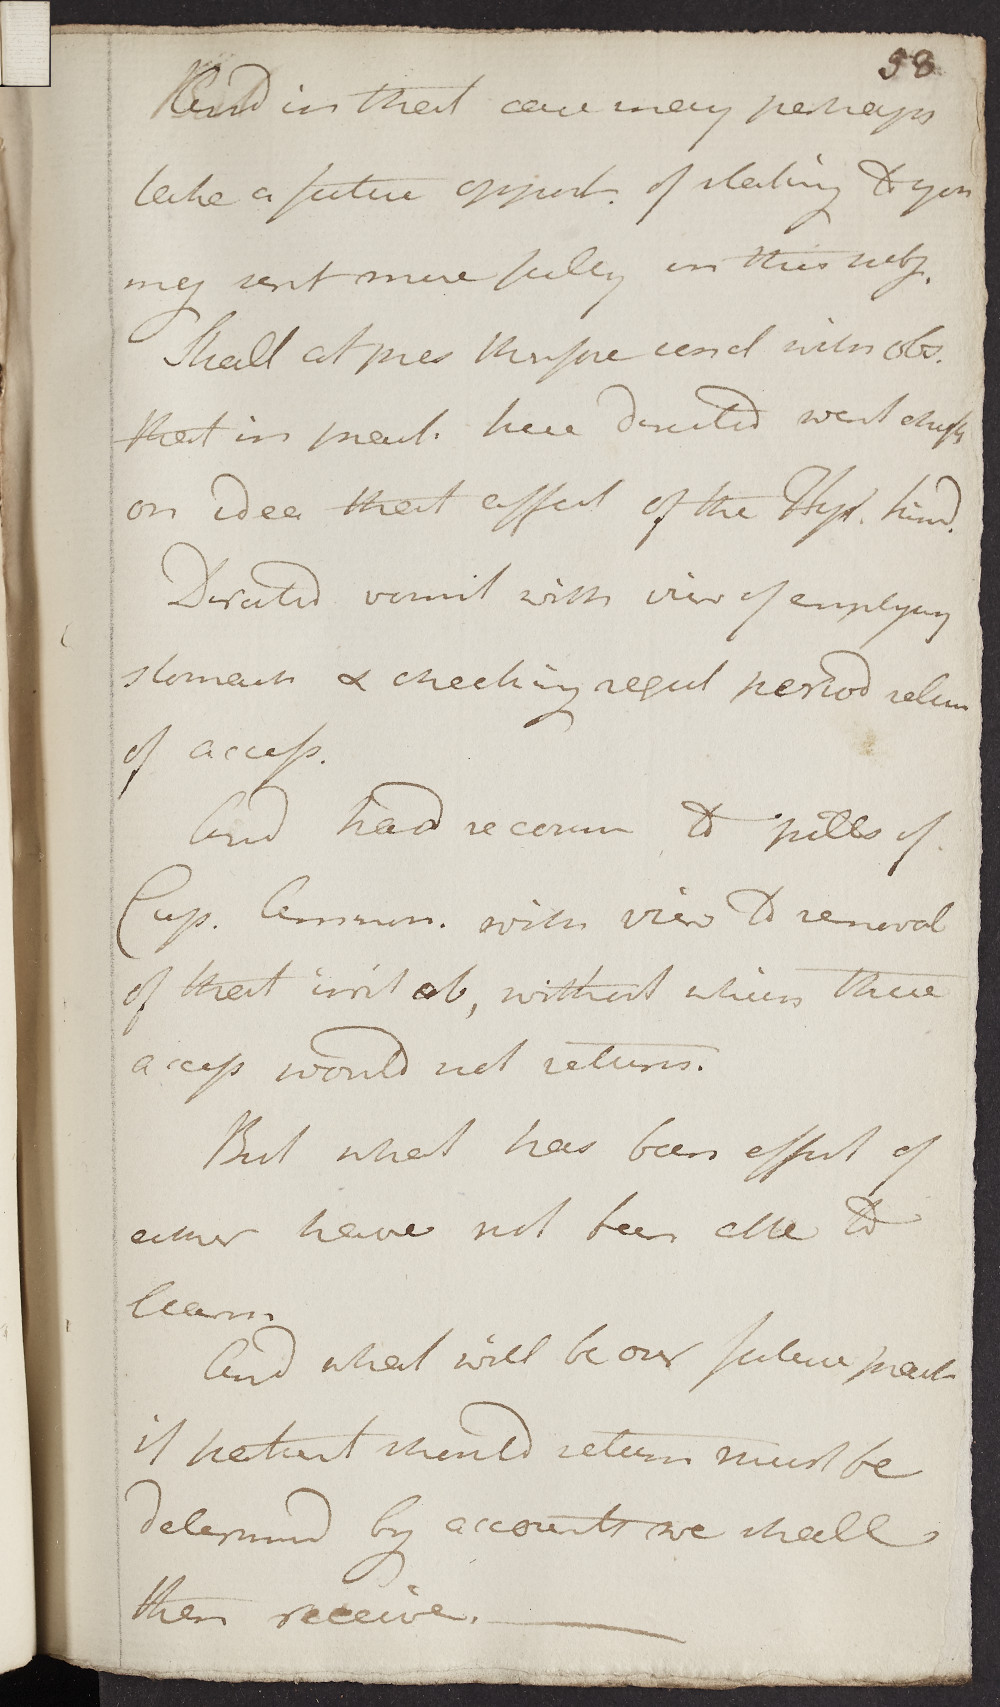 58
And in that case may perhaps
take a future opport. of stating to you
my sent more fully on this subj.
Shall at pres therfore concl with obs.
that in pract. have directed went chiefly
on idea that affect of the Hyst. kind.
Directed vomit with view of emptying
stomach & checking regul period return
of access.
And had recomm to pills of
Cup. Ammon. with view to removal
of that irritab, without which these
access would not return.
But what has been effect of
either have not been able to
learn
And what will be our future pract
if patient should return must be
determind by accounts we shall
then receive.